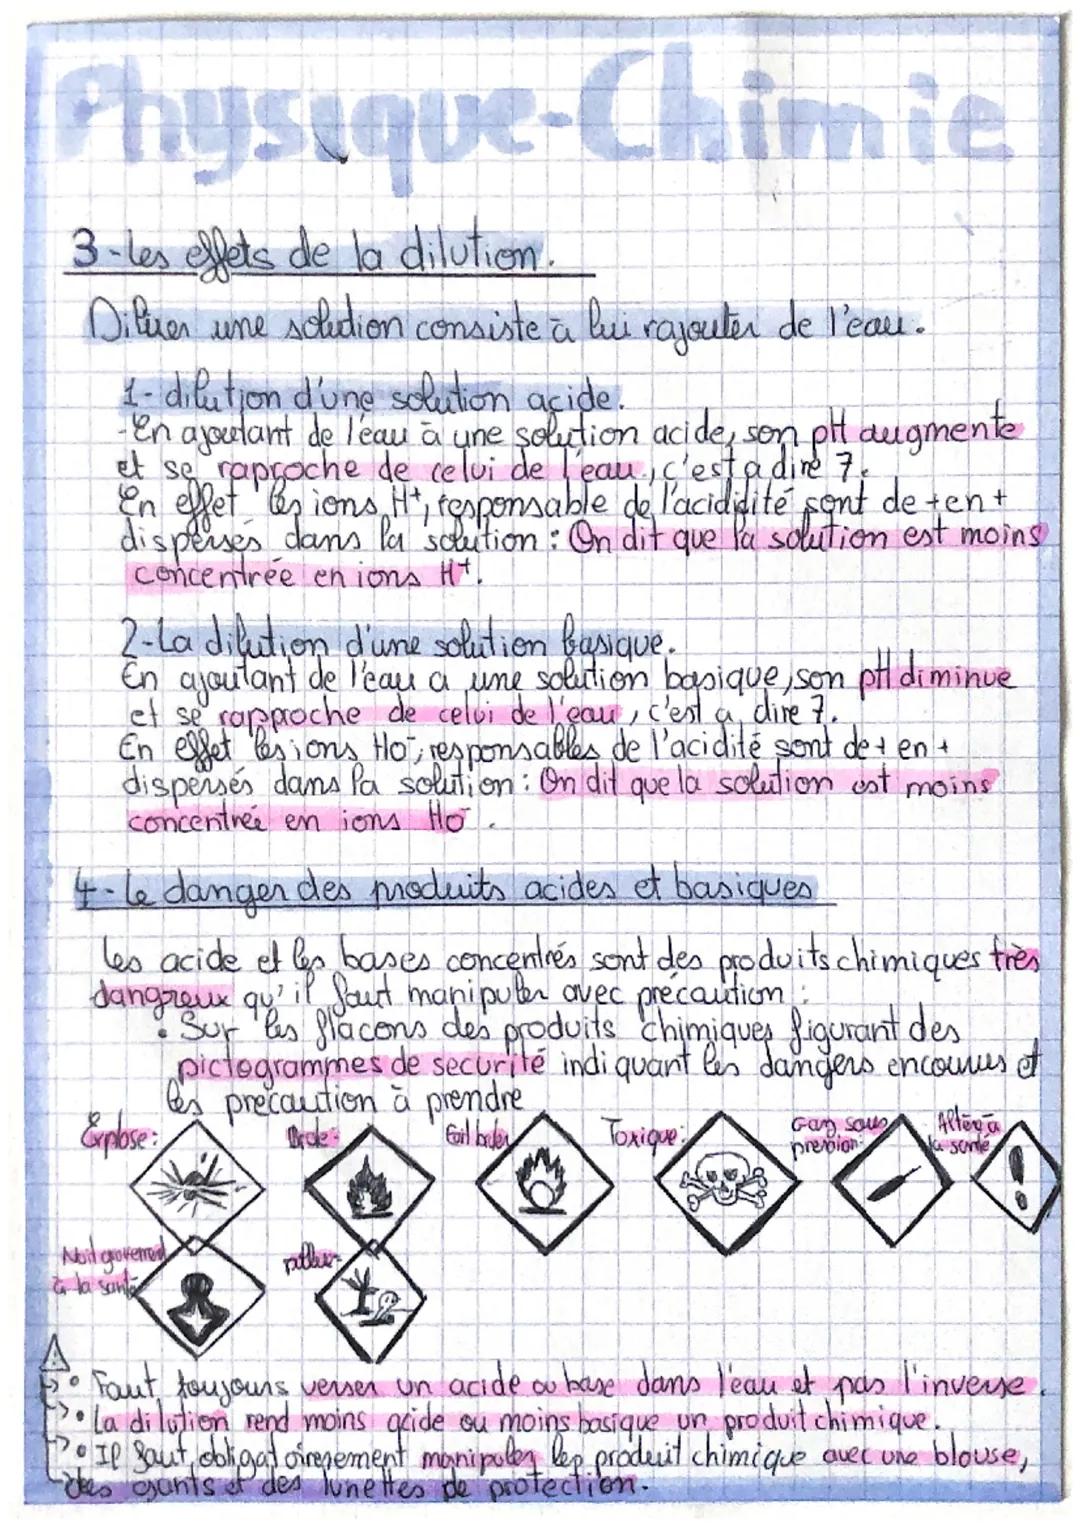 Physique-Chimie
3-les effets de la dilution.
Diluer une solution consiste à lui rajouter de l'eau.
1-dilution d'une solution acide.
-En ajoutant de l'eau à une solution acide, son pH augmente
et se raproche de celui de l'eau, c'est a dire 7.
En effet les ions H+, responsable de l'acididité sont de + en +
dispersés dans la solution : On dit que la solution est moins
concentrée en ions H+.
2-La dilution d'une solution basique.
En ajoutant de l'eau a une solution basique, son pH diminue
et se rapproche de celui de l'eau, c'est a dire 7.
En effet les ions Ho-, responsables de l'acidité sont de + en +
dispersés dans la solution : On dit que la solution est moins
concentrée en ions Ho-.
4-le danger des produits acides et basiques
les acide et les bases concentrés sont des produits chimiques très
dangreux qu'il faut manipuler avec précaution :
• Sur les flacons des produits chimiques figurant des
pictogrammes de securité indiquant les dangers encourus et
les precaution à prendre
Explose:
Brule:
Fait bruler
Toxique:
Gaz sous
pression:
Altère à
la santé
Nuit gravement
à la santé
pollue:
• Faut toujours verser un acide ou base dans l'eau et pas l'inverse.
• La dilution rend moins acide ou moins basique un produit chimique.
• Il faut obligatoirement manipuler les produit chimique avec une blouse,
des gants et des lunettes de protection.